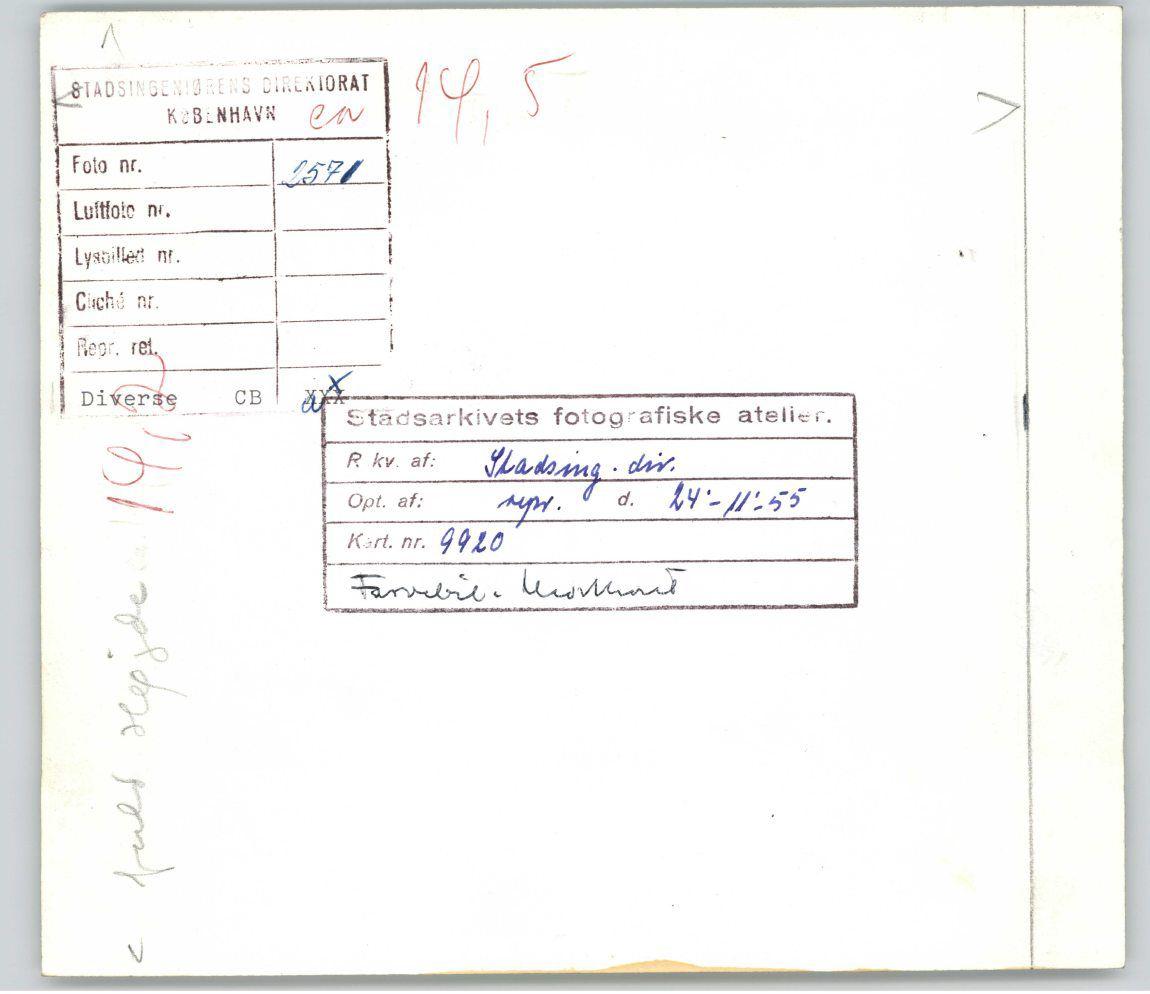 STADSINGENIØRENS DIREKTORAT
KØBENHAVN
ca 14,5
Foto nr. 2571
Luftfoto nr.
Lysbilled nr.
Cliché nr.
Repr. ret.
Diverse CB XXX
Stadsarkivets fotografiske atelier.
R kv. af: Stadsing. dir.
Opt. af: repr. d. 24'-11'-55
Kart. nr. 9920
fuld Højde 14,2